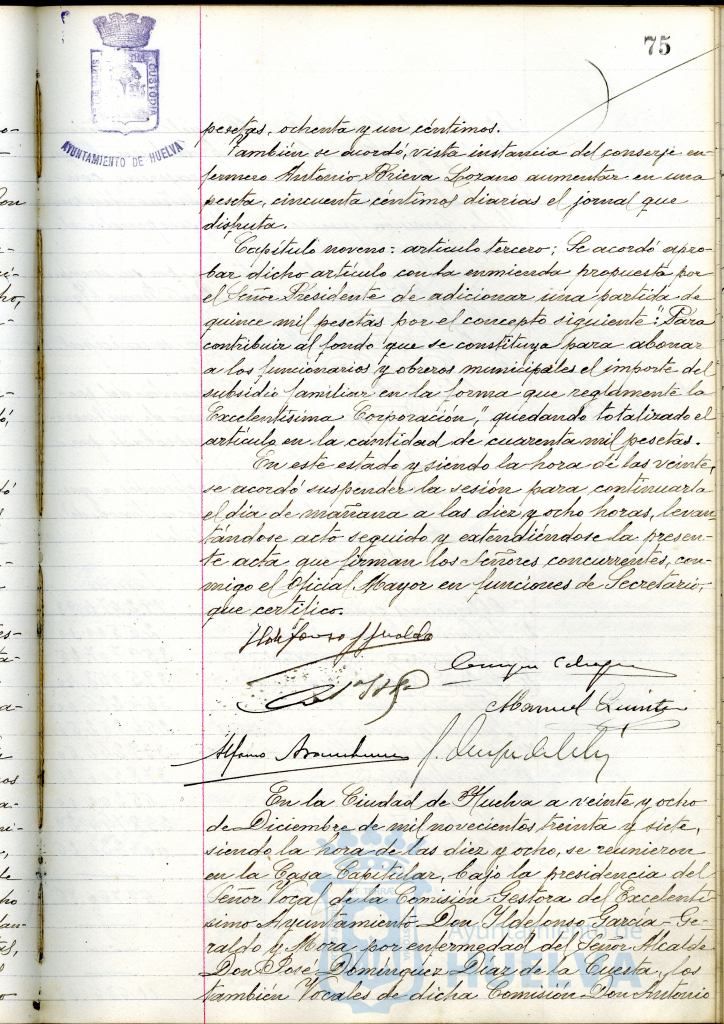 75
PORTUS MARIS ET TERRAE CUSTODIA
AYUNTAMIENTO DE HUELVA
pesetas, ochenta y un céntimos.
También se acordó, vista instancia del conserje en-
fermero Antonio Brieva Lozano aumentar en una
peseta, cincuenta céntimos diarias el jornal que
disputa.
Capítulo noveno: artículo tercero; Se acordó apro-
bar dicho artículo con la enmienda propuesta por
el Señor Presidente de adicionar una partida de
quince mil pesetas por el concepto siguiente: "Para
contribuir al fondo que se constituya para abonar
a los funcionarios y obreros municipales el importe del
subsidio familiar en la forma que reglamente la
Excelentísima Corporación", quedando totalizado el
artículo en la cantidad de cuarenta mil pesetas.
En este estado y siendo la hora de las veinte,
se acordó suspender la sesión para continuarla
el día de mañana a las diez y ocho horas, levan-
tándose acto seguido y extendiéndose la presen-
te acta que firman los Señores concurrentes, con-
migo el Oficial Mayor en funciones de Secretario,
que certifico.
Ildefonso Geraldo
Manuel Quintero
Alfonso
En la Ciudad de Huelva a veinte y ocho
de Diciembre de mil novecientos treinta y siete,
siendo la hora de las diez y ocho, se reunieron
en la Casa Capitular, bajo la presidencia del
Señor Vocal de la Comisión Gestora del Excelentí-
simo Ayuntamiento Don Ildefonso García-Ge-
raldo y Mora por enfermedad del Señor Alcalde
Don José Domínguez Díaz de la Cuesta, los
también Vocales de dicha Comisión Don Antonio
Ayuntamiento de
HUELVA